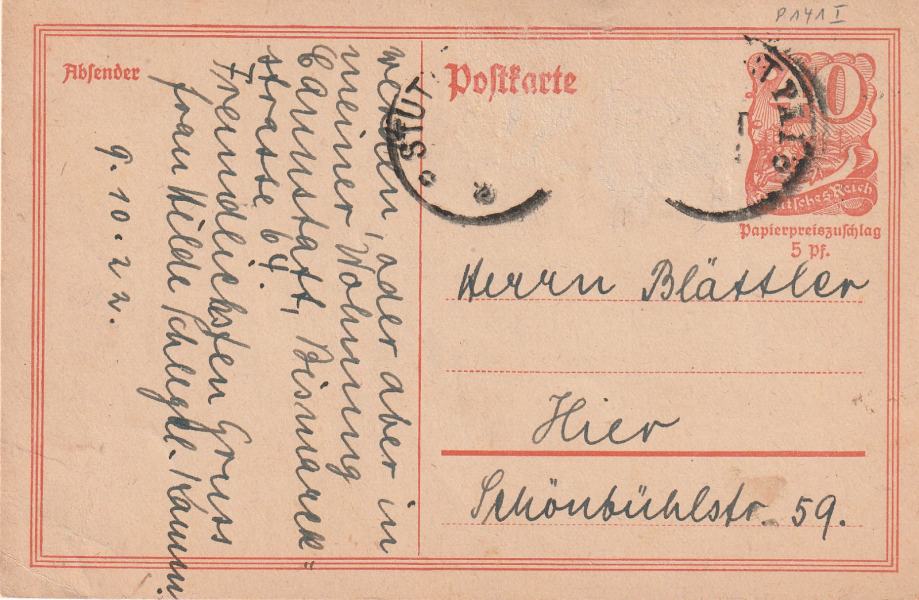 P141 I
Absender
Postkarte
STUT
Deutsches Reich
Papierpreiszuschlag
5 Pf.
Herrn Blättler
Hier
Schönbühlstr. 59.
werden, oder aber in
meiner Wohnung
Cannstatt, Bismarck=
strasse 64.
Freundlichsten Gruss
frau Hilde
9. 10. 22.